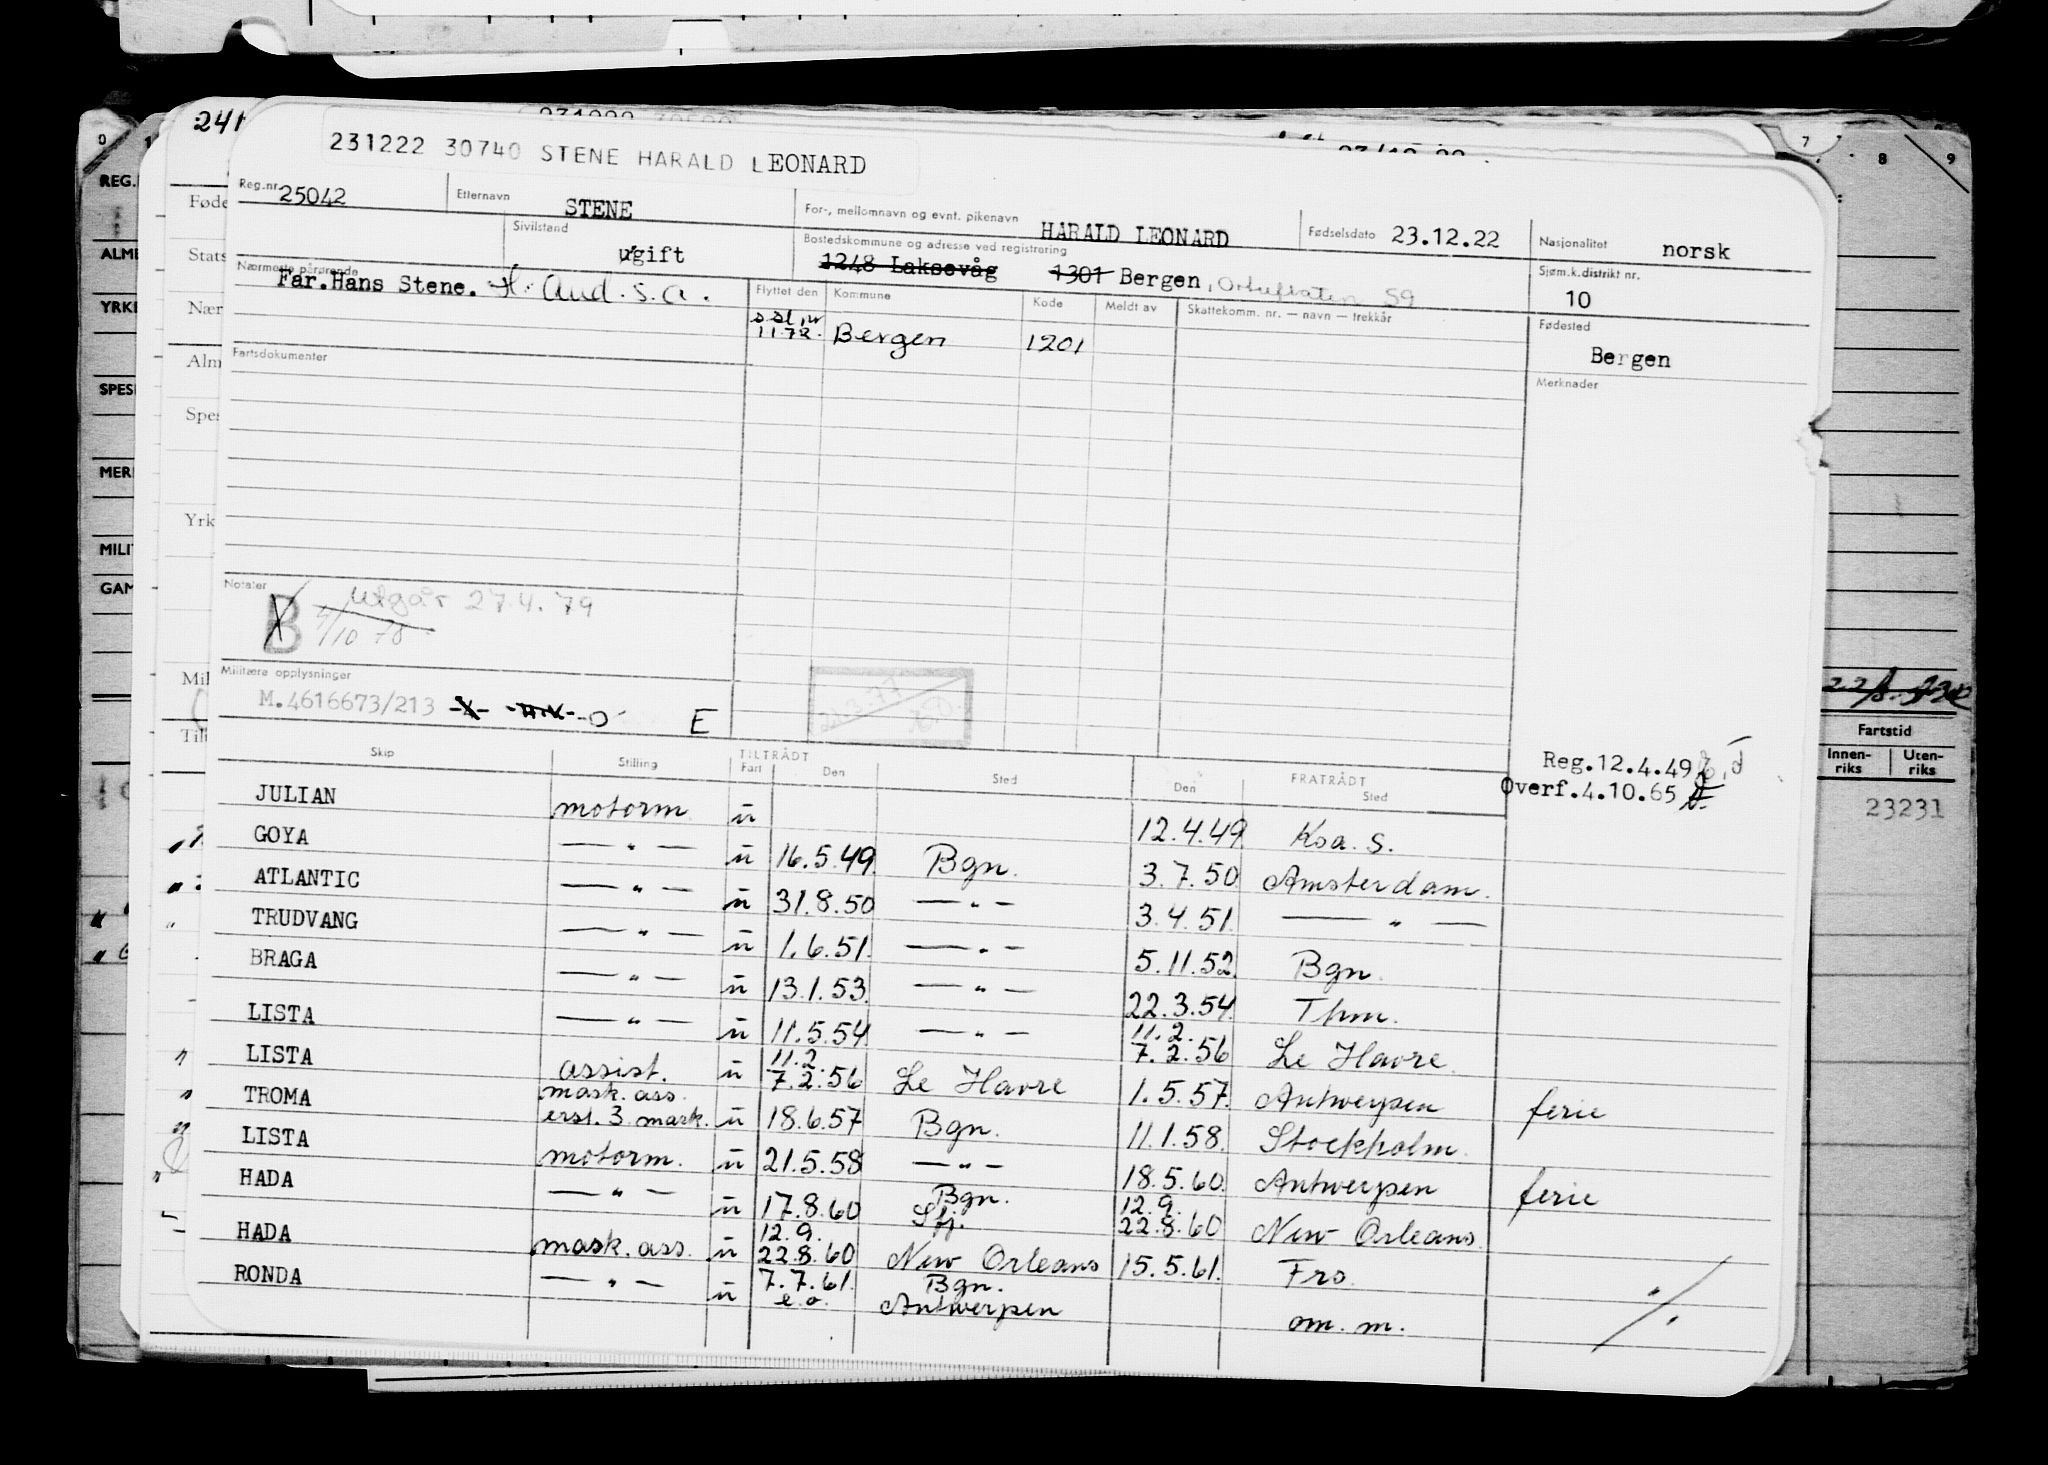 241
231222 30740 STENE HARALD LEONARD
Reg.nr. 25042 Etternavn STENE For-, mellomnavn og evnt. pikenavn HARALD LEONARD Fødselsdato 23.12.22 Nasjonalitet norsk
Sivilstand gift Bostedskommune og adresse ved registrering 1248 Laksevåg 1301 Bergen, 59 Sjøm.k.distrikt nr. 10
Nærmeste pårørende Far. Hans Stene. H. Aud. s.a.
Flyttet den Kommune Kode Meldt av Skattekomm. nr. — navn — trekkår Fødested Bergen
1172. Bergen 1201
Fartsdokumenter Merknader
Notater B Utgår 27.4.79
/10 78
Militære opplysninger
M.4616673/213 E
Reg.12.4.49
Overf.4.10.65
Skip Stilling TILTRÅDT Fart Den Sted FRATRÅDT Den Sted
JULIAN motorm. u 12.4.49 Koa. S.
GOYA — " — u 16.5.49 Bgn. 3.7.50 Amsterdam.
ATLANTIC — " — u 31.8.50 — " — 3.4.51. — " —
TRUDVANG — " — u 1.6.51. — " — 5.11.52. Bgn.
BRAGA — " — u 13.1.53. — " — 22.3.54. Thm.
LISTA — " — u 11.5.54 — " — 11.2. 7.2.56 Le Havre.
LISTA assist. u 11.2. 7.2.56 Le Havre 1.5.57. Antwerpen ferie
TROMA mask. ass. erst. 3. mask. u 18.6.57 Bgn. 11.1.58. Stockholm.
LISTA motorm. u 21.5.58 — " — 18.5.60. Antwerpen ferie
HADA — " — u 17.8.60 Bgn. 12.9. 22.8.60 New Orleans.
HADA mask. ass. u 12.9. 22.8.60 New Orleans 15.5.61. Fro.
RONDA — " — u 7.7.61. e.o. Bgn. Antwerpen om. m. ./.
REG.
ALME
YRKE
SPESI
MERI
MILI
GAM
Føde
Stats
Nær
Alm
Spes
Yrk
Mil
Til
7 8 9
Fartstid
Innen-riks Uten-riks
23231